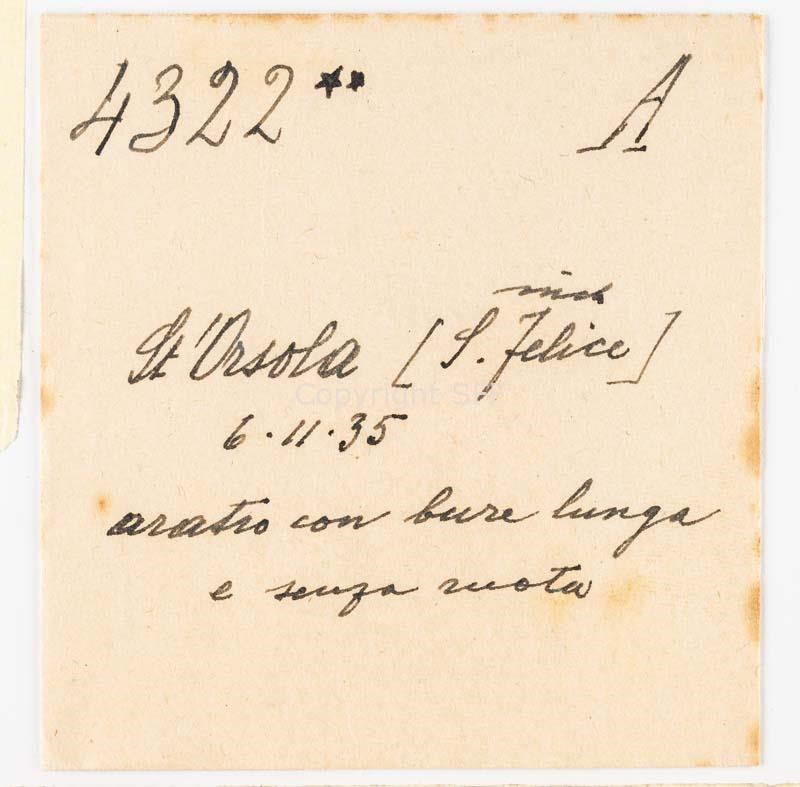 4322** A
St'Orsola [S. Felice]
6.11.35
aratro con bure lunga
e senza ruota
Copyright